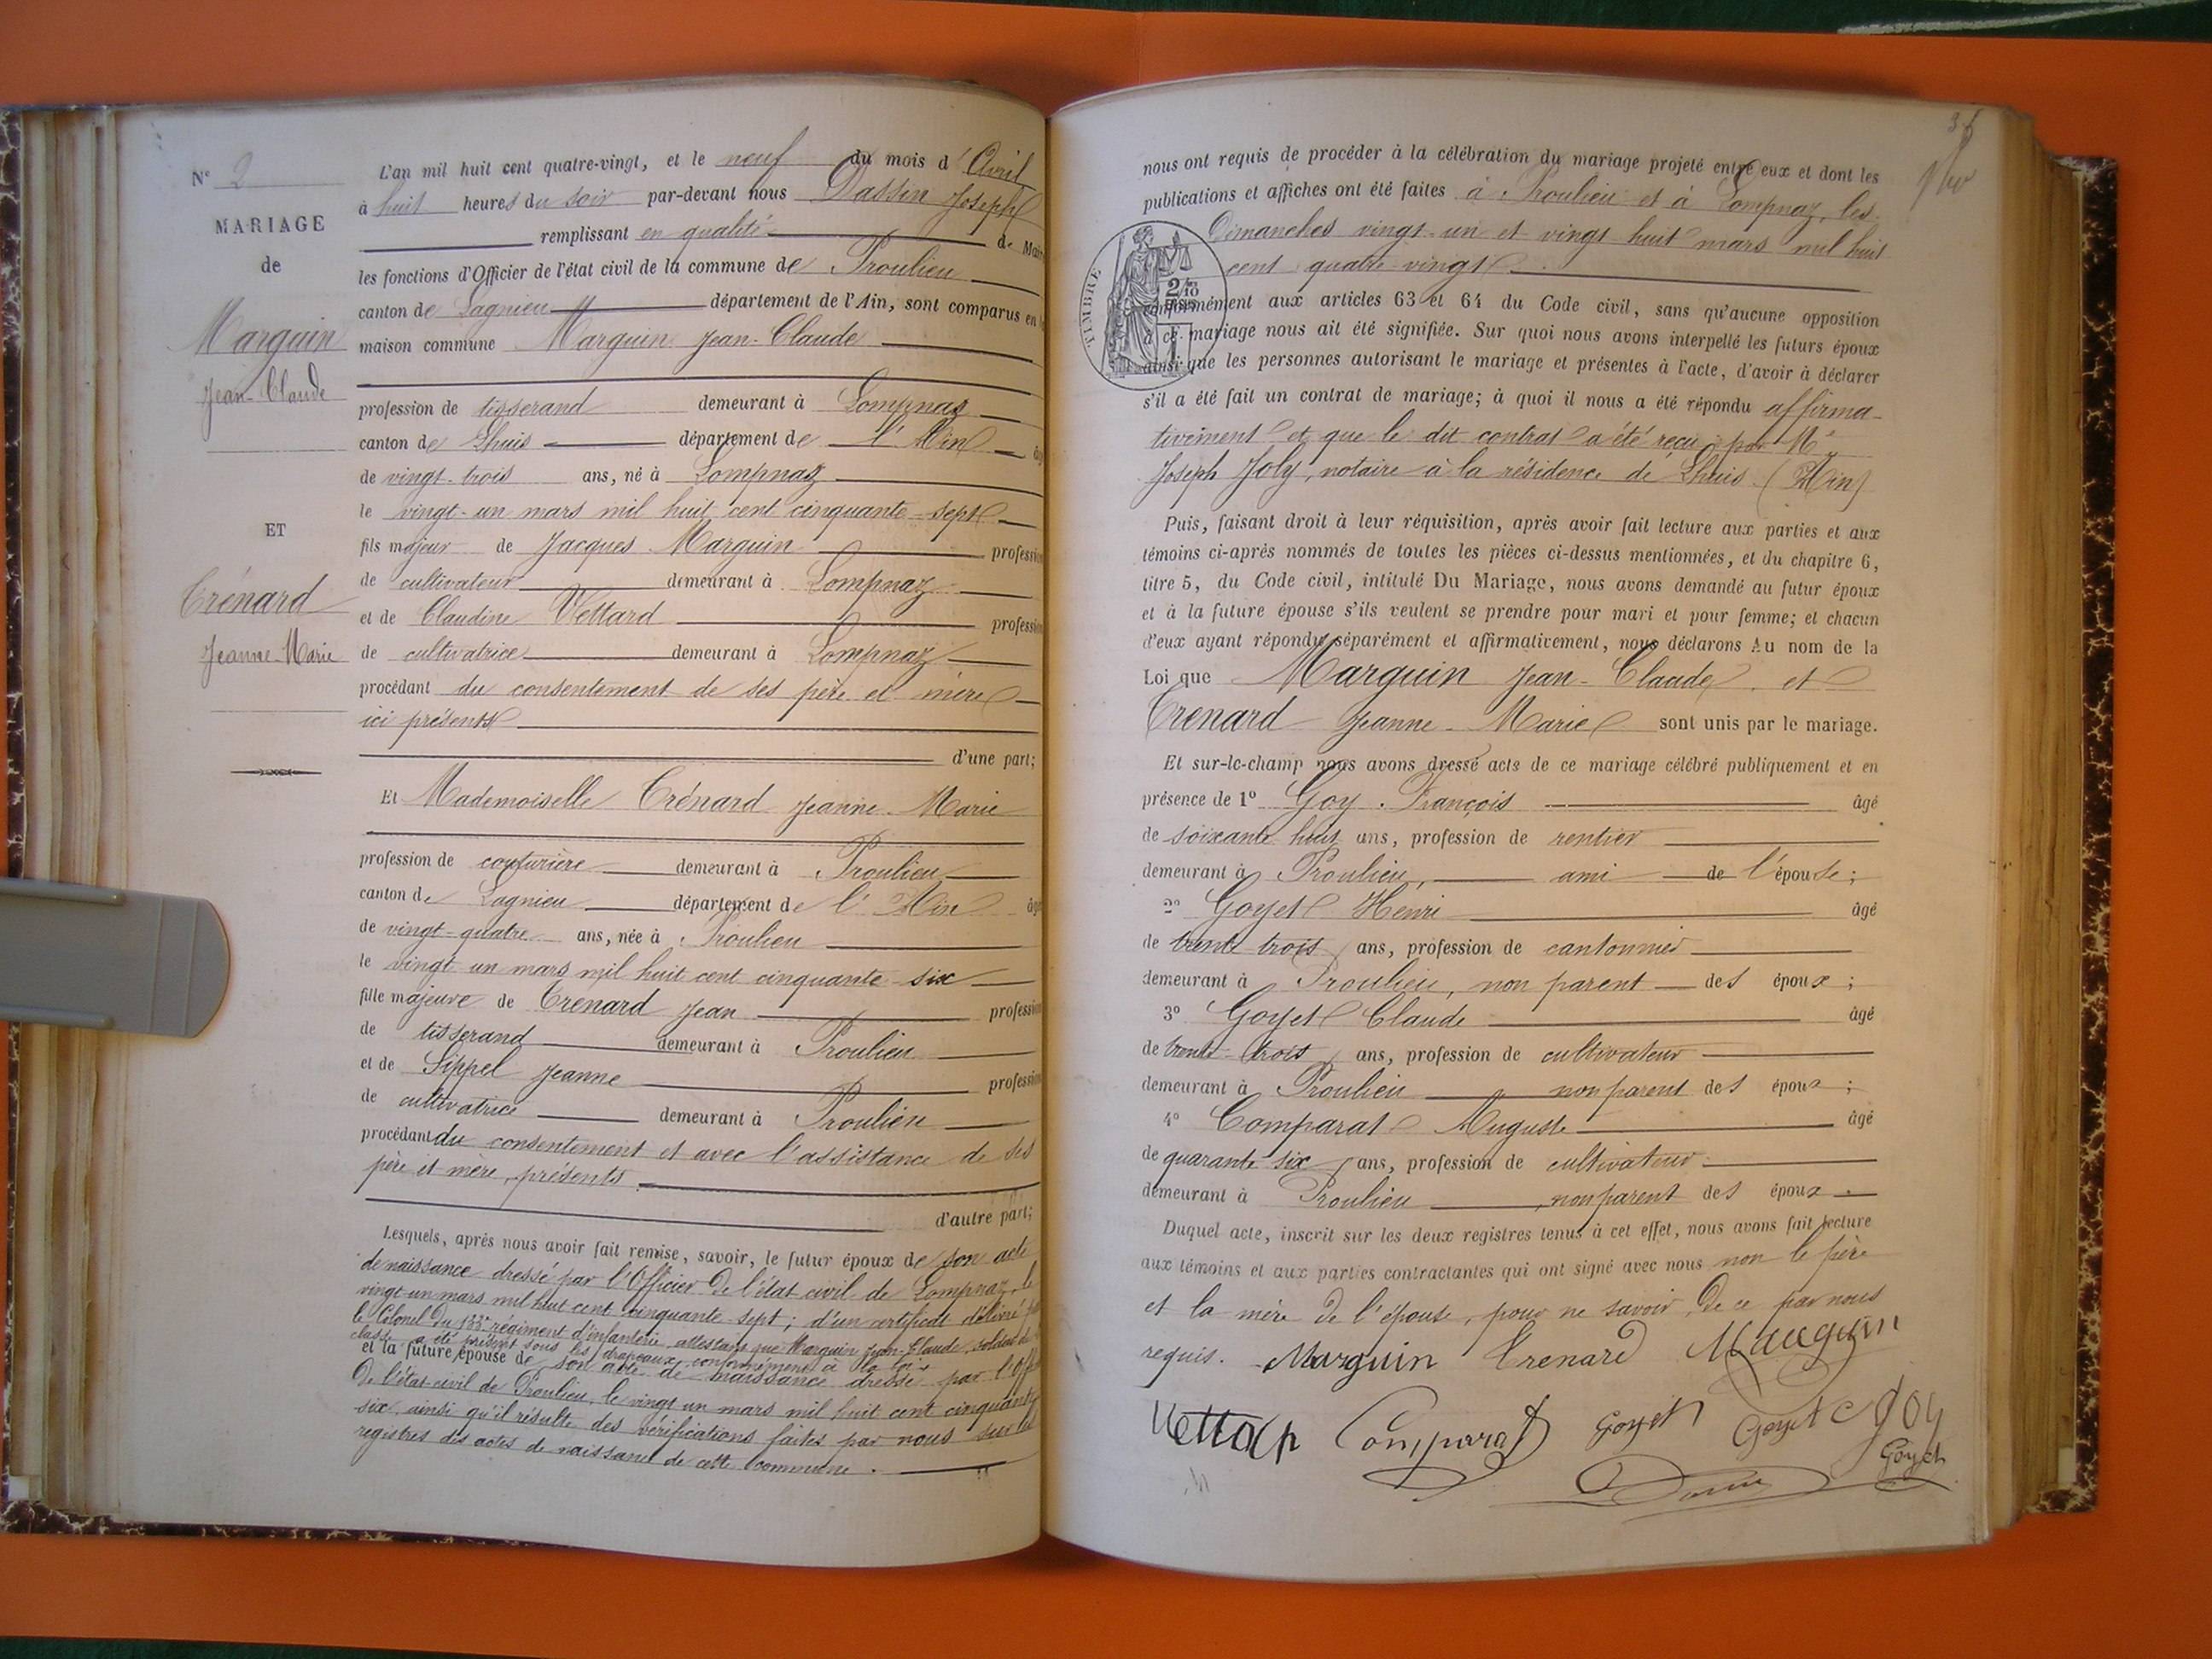 N° 2
MARIAGE
de
Marguin
Jean-Claude
ET
Trénard
Jeanne-Marie
L'an mil huit cent quatre-vingt, et le neuf du mois d'Avril
à huit heures du soir par-devant nous Dassin Joseph
remplissant en qualité de Mai
les fonctions d'Officier de l'état civil de la commune de Proulieu
canton de Lagnieu département de l'Ain, sont comparus en
maison commune Marguin Jean-Claude
profession de tisserand demeurant à Lompnaz
canton de Lhuis département de l'Ain
de vingt-trois ans, né à Lompnaz
le vingt-un mars mil huit cent cinquante-sept
fils majeur de Jacques Marguin profession
de cultivateur demeurant à Lompnaz
et de Claudine Vettard profession
de cultivatrice demeurant à Lompnaz
procédant du consentement de ses père et mère
ici présents
d'une part;
Et Mademoiselle Trénard Jeanne-Marie
profession de couturière demeurant à Proulieu
canton de Lagnieu département de l'Ain âg
de vingt-quatre ans, née à Proulieu
le vingt un mars mil huit cent cinquante-six
fille majeure de Trenard Jean profession
de tisserand demeurant à Proulieu
et de Sippel Jeanne profession
de cultivatrice demeurant à Proulieu
procédant du consentement et avec l'assistance de ses
père et mère, présents
d'autre part;
Lesquels, après nous avoir fait remise, savoir, le futur époux de son acte
de naissance dressé par l'Officier de l'état civil de Lompnaz, le
vingt-un mars mil huit cent cinquante-sept; d'un certificat délivré
le Colonel du 133e régiment d'infanterie attestant que Marguin Jean-Claude, soldat de
classe a été présent sous les drapeaux conformément à la loi
et la future épouse de son acte de naissance dressé par l'Off
de l'état-civil de Proulieu, le vingt un mars mil huit cent cinquante
six, ainsi qu'il résulte des vérifications faites par nous sur les
registres des actes de naissance de cette commune.
nous ont requis de procéder à la célébration du mariage projeté entre eux et dont les
publications et affiches ont été faites à Proulieu et à Lompnaz, les
Dimanches vingt-un et vingt-huit mars mil huit
cent quatre-vingt
TIMBRE
conformément aux articles 63 et 64 du Code civil, sans qu'aucune opposition
à ce mariage nous ait été signifiée. Sur quoi nous avons interpellé les futurs époux
ainsi que les personnes autorisant le mariage et présentes à l'acte, d'avoir à déclarer
s'il a été fait un contrat de mariage; à quoi il nous a été répondu affirma-
tivement et que le dit contrat a été reçu par Me
Joseph Joly, notaire à la résidence de Lhuis (Ain)
Puis, faisant droit à leur réquisition, après avoir fait lecture aux parties et aux
témoins ci-après nommés de toutes les pièces ci-dessus mentionnées, et du chapitre 6,
titre 5, du Code civil, intitulé Du Mariage, nous avons demandé au futur époux
et à la future épouse s'ils veulent se prendre pour mari et pour femme; et chacun
d'eux ayant répondu séparément et affirmativement, nous déclarons Au nom de la
Loi que Marguin Jean-Claude, et
Trenard Jeanne-Marie sont unis par le mariage.
Et sur-le-champ nous avons dressé acte de ce mariage célébré publiquement et en
présence de 1° Goy François âgé
de soixante huit ans, profession de rentier
demeurant à Proulieu, ami de l'épouse;
2° Goyet Henri âgé
de trente trois ans, profession de cantonnier
demeurant à Proulieu, non parent des époux;
3° Goyet Claude âgé
de trente-trois ans, profession de cultivateur
demeurant à Proulieu non parent des époux;
4° Comparat Auguste âgé
de quarante six ans, profession de cultivateur
demeurant à Proulieu, non parent des époux.
Duquel acte, inscrit sur les deux registres tenus à cet effet, nous avons fait lecture
aux témoins et aux parties contractantes qui ont signé avec nous non le père
et la mère de l'épouse, pour ne savoir, de ce par nous
requis. Marguin Trenard Marguin
Comparat Goyet Goyet C goy
Goyet